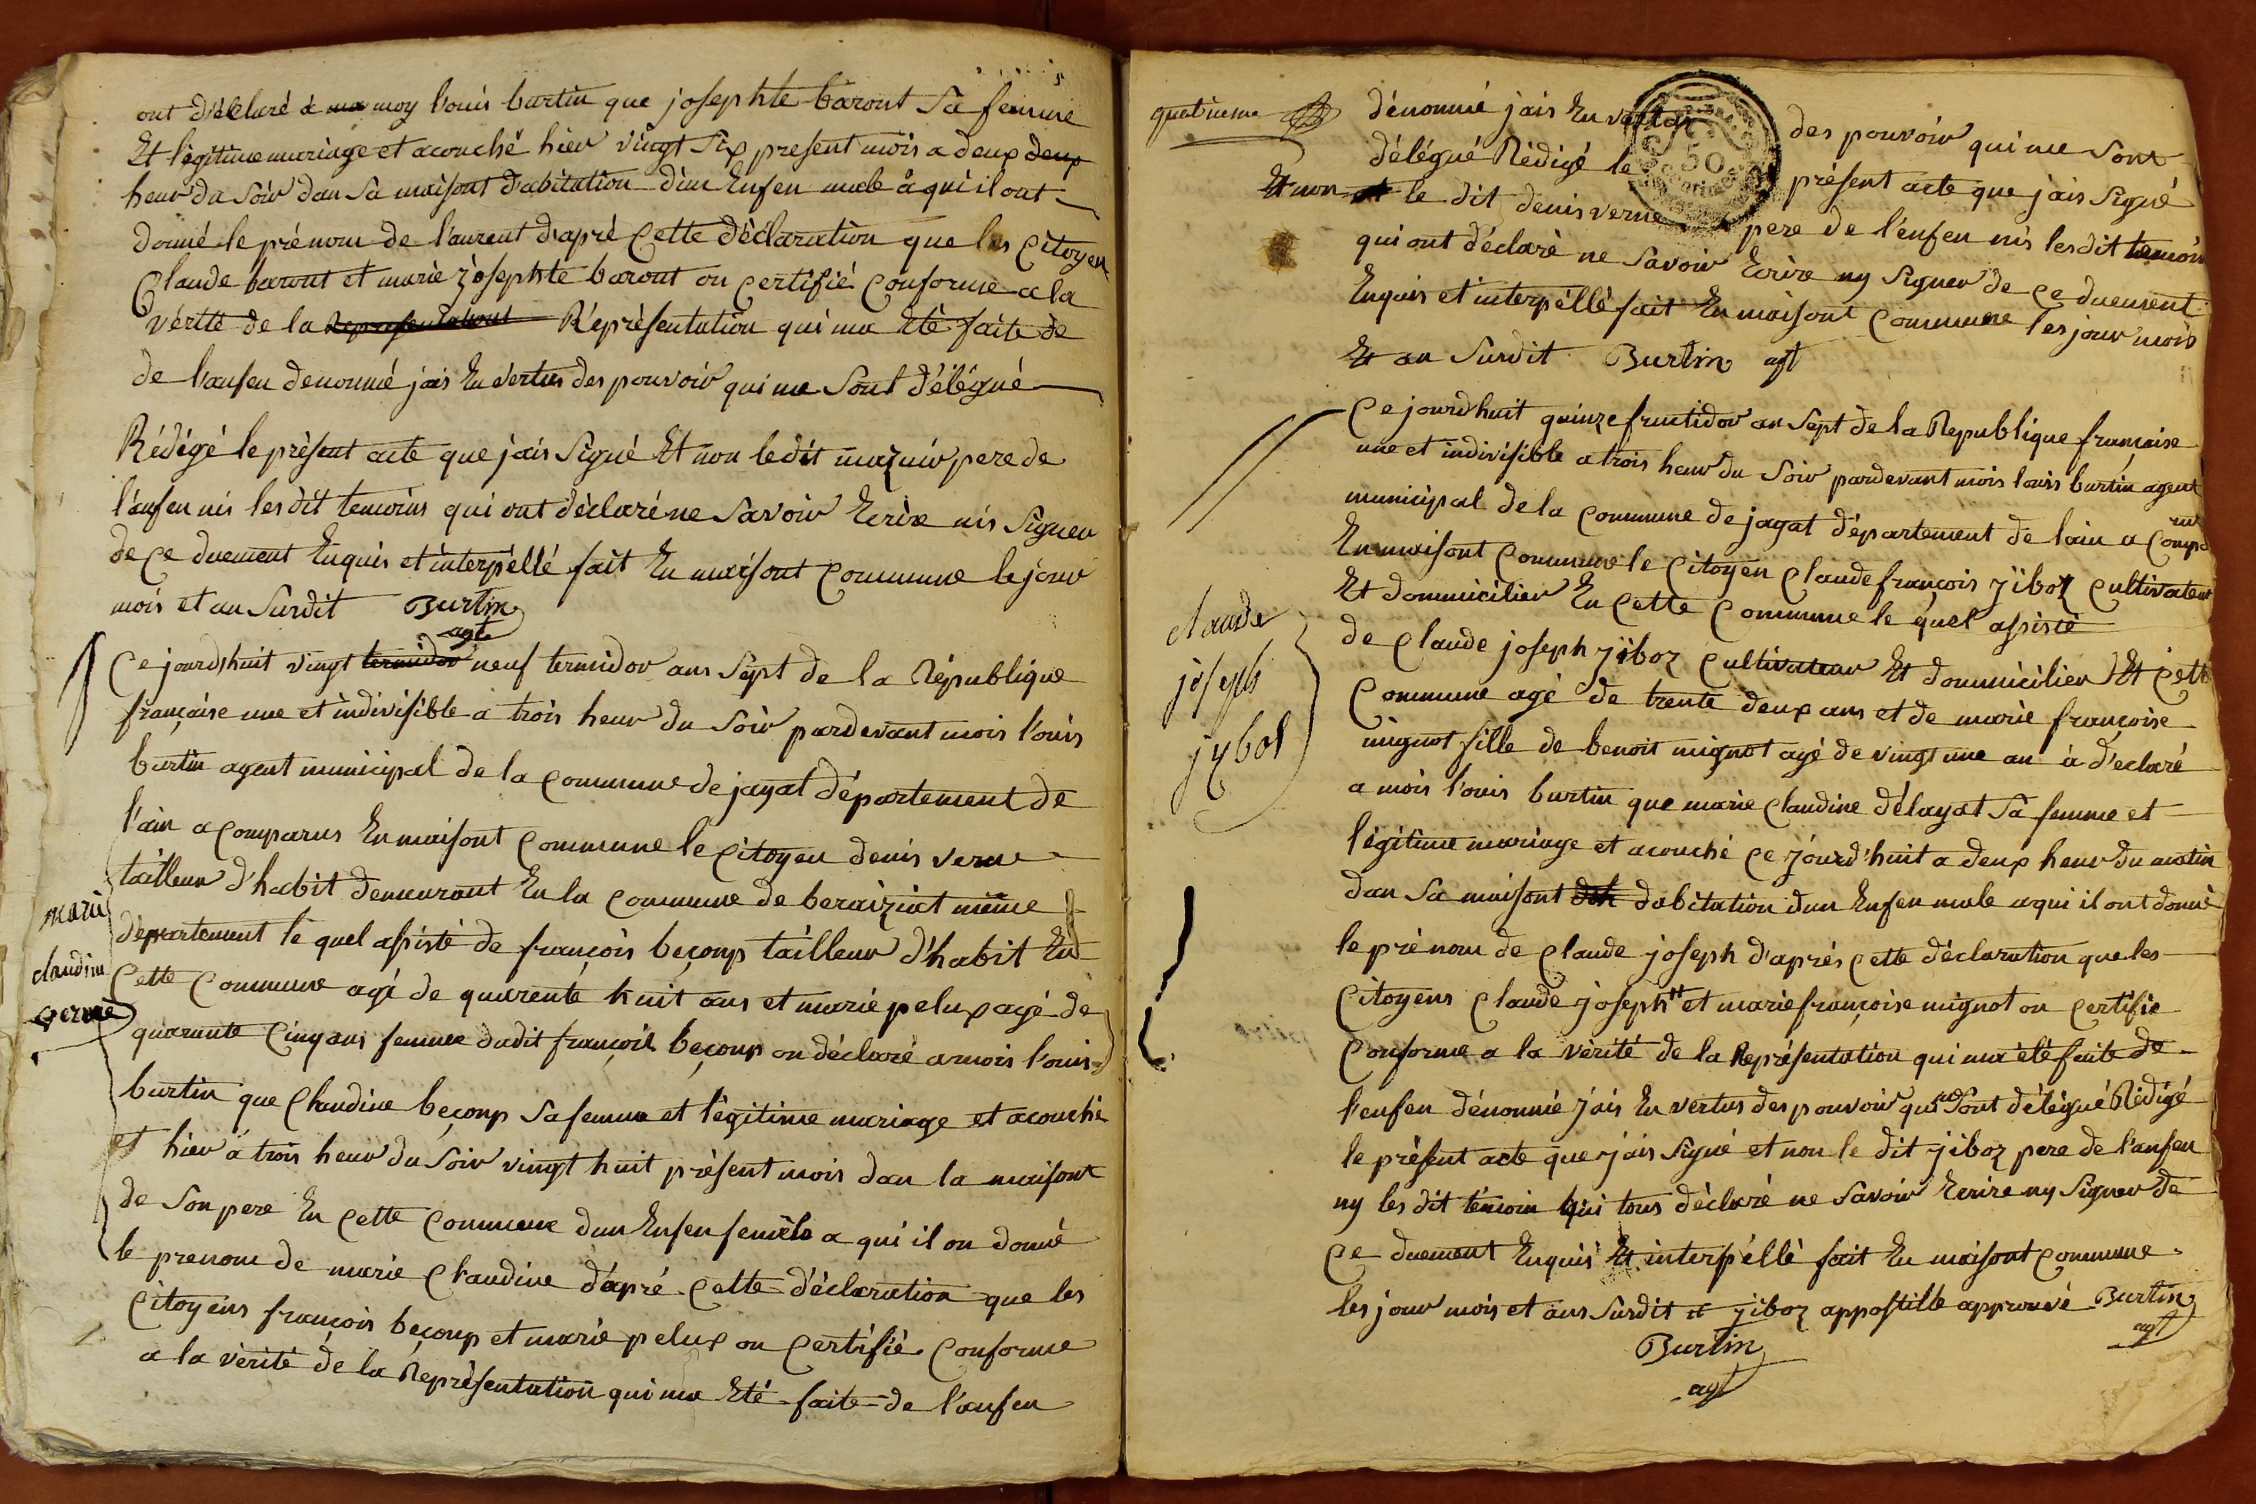 ont déclaré a moy l'ouis burtin que josephte baront Sa femme
Et légitime mariage et acouché hier vingt Six present mois a deux deux
heur du Soir dan Sa maisont d'abitation d'un Enfen male a qui il ont
donné le prénom de l'aurent d'apré Cette déclaration que les Citoyen
Claude baront et marie josephte baront on Certifié Conforme a la
vérité de la Representationt Répresentation qui ma Eté faite de
de l'anfen denommé jais En vertus des pouvoir qui me Sont délégué
Rédigé le présent acte que jais Signé Et non le dit mazuir pere de
l'anfen nis les dit temoins qui ont déclaré ne Savoir Ecrire nis Signer
de Ce duement Enquis et interpéllé fait En maisont Commune le jour
mois et an Surdit Burtin
agt
Ce jourd'huit vingt termidor neuf termidor ans Sept de la République
française une et indivisible a trois heur du Soir pardevant mois l'ouis
burtin agent municipal de la Commune de jayat département de
l'ain a Comparus En maisont Commune le Citoyen denis verne
tailleur d'habit demeurant En la Commune de beraiziat même
département le quel assisté de françois beçoup tailleur d'habit En
marie
claudine
verne
Cette Commune agé de quarente huit ans et marie pelux agé de
quarante Cinq ans femme dudit françois beçoup on déclaré a mois l'ouis
burtin que Claudine beçoup Sa femme et légitime mariage et acouché
et hier a trois heur du Soir vingt huit présent mois dan la maisont
de Son pere En Cette Commune d'un Enfen femele a qui il on donné
le prenom de marie Claudine d'apré Cette déclaration que les
Citoyens françois beçoup et marie pelux on Certifié Conforme
a la vérité de la Représentation qui ma Eté faite de l'anfen
quatrieme
dénommé jais En vertus des pouvoir qui me Sont
délégué Rédigé le présent acte que jais Signé
Et non le dit denis verne pere de l'enfen nis les dit temoin
qui ont déclaré ne Savoir Ecrire ny Signer de Ce duement
Enquis et interpéllé fait En maisont Commune les jour mois
Et an Surdit Burtin agt
50
Ce jourdhuit quinze fructidor an Sept de la Republique française
une et indivisible a trois heur du Soir pardevant mois louis burtin agent
municipal de la Commune de jayat département de lain a Comparu
En maisont Commune le Citoyen Claude françois jiboz Cultivateur
Et dommicilier En Cette Commune le quel assisté
claude
joseph
jybos
de Claude joseph jiboz Cultivateur Et dommicilier Et Cette
Commune agé de trente deux ans et de marie françoise
mignot fille de benoit mignot agé de vingt une an a déclaré
a mois l'ouis burtin que marie Claudine délayat Sa femme et
légitime mariage et acouché Ce jourd'huit a deux heur du matin
dan Sa maisont dabitation dun Enfen male a qui il ont donné
le prénom de Claude joseph d'aprés Cette déclaration que les
Citoyens Claude joseph # et marie françoise mignot on Certifie
Conforme a la vérité de la Représentation qui ma été faite de
l'enfen dénommé jais En vertus des pouvoir qui me Sont délégué Rédigé
le présent acte que jais Signé et non le dit jiboz pere de l'anfen
ny les dit témoin qui tous déclaré ne Savoir Ecrire ny Signer de
Ce duement Enquis Et interpéllé fait En maisont Commune
les jour mois et ans Surdit # jiboz appostille approuvé Burtin
agt
Burtin
agt